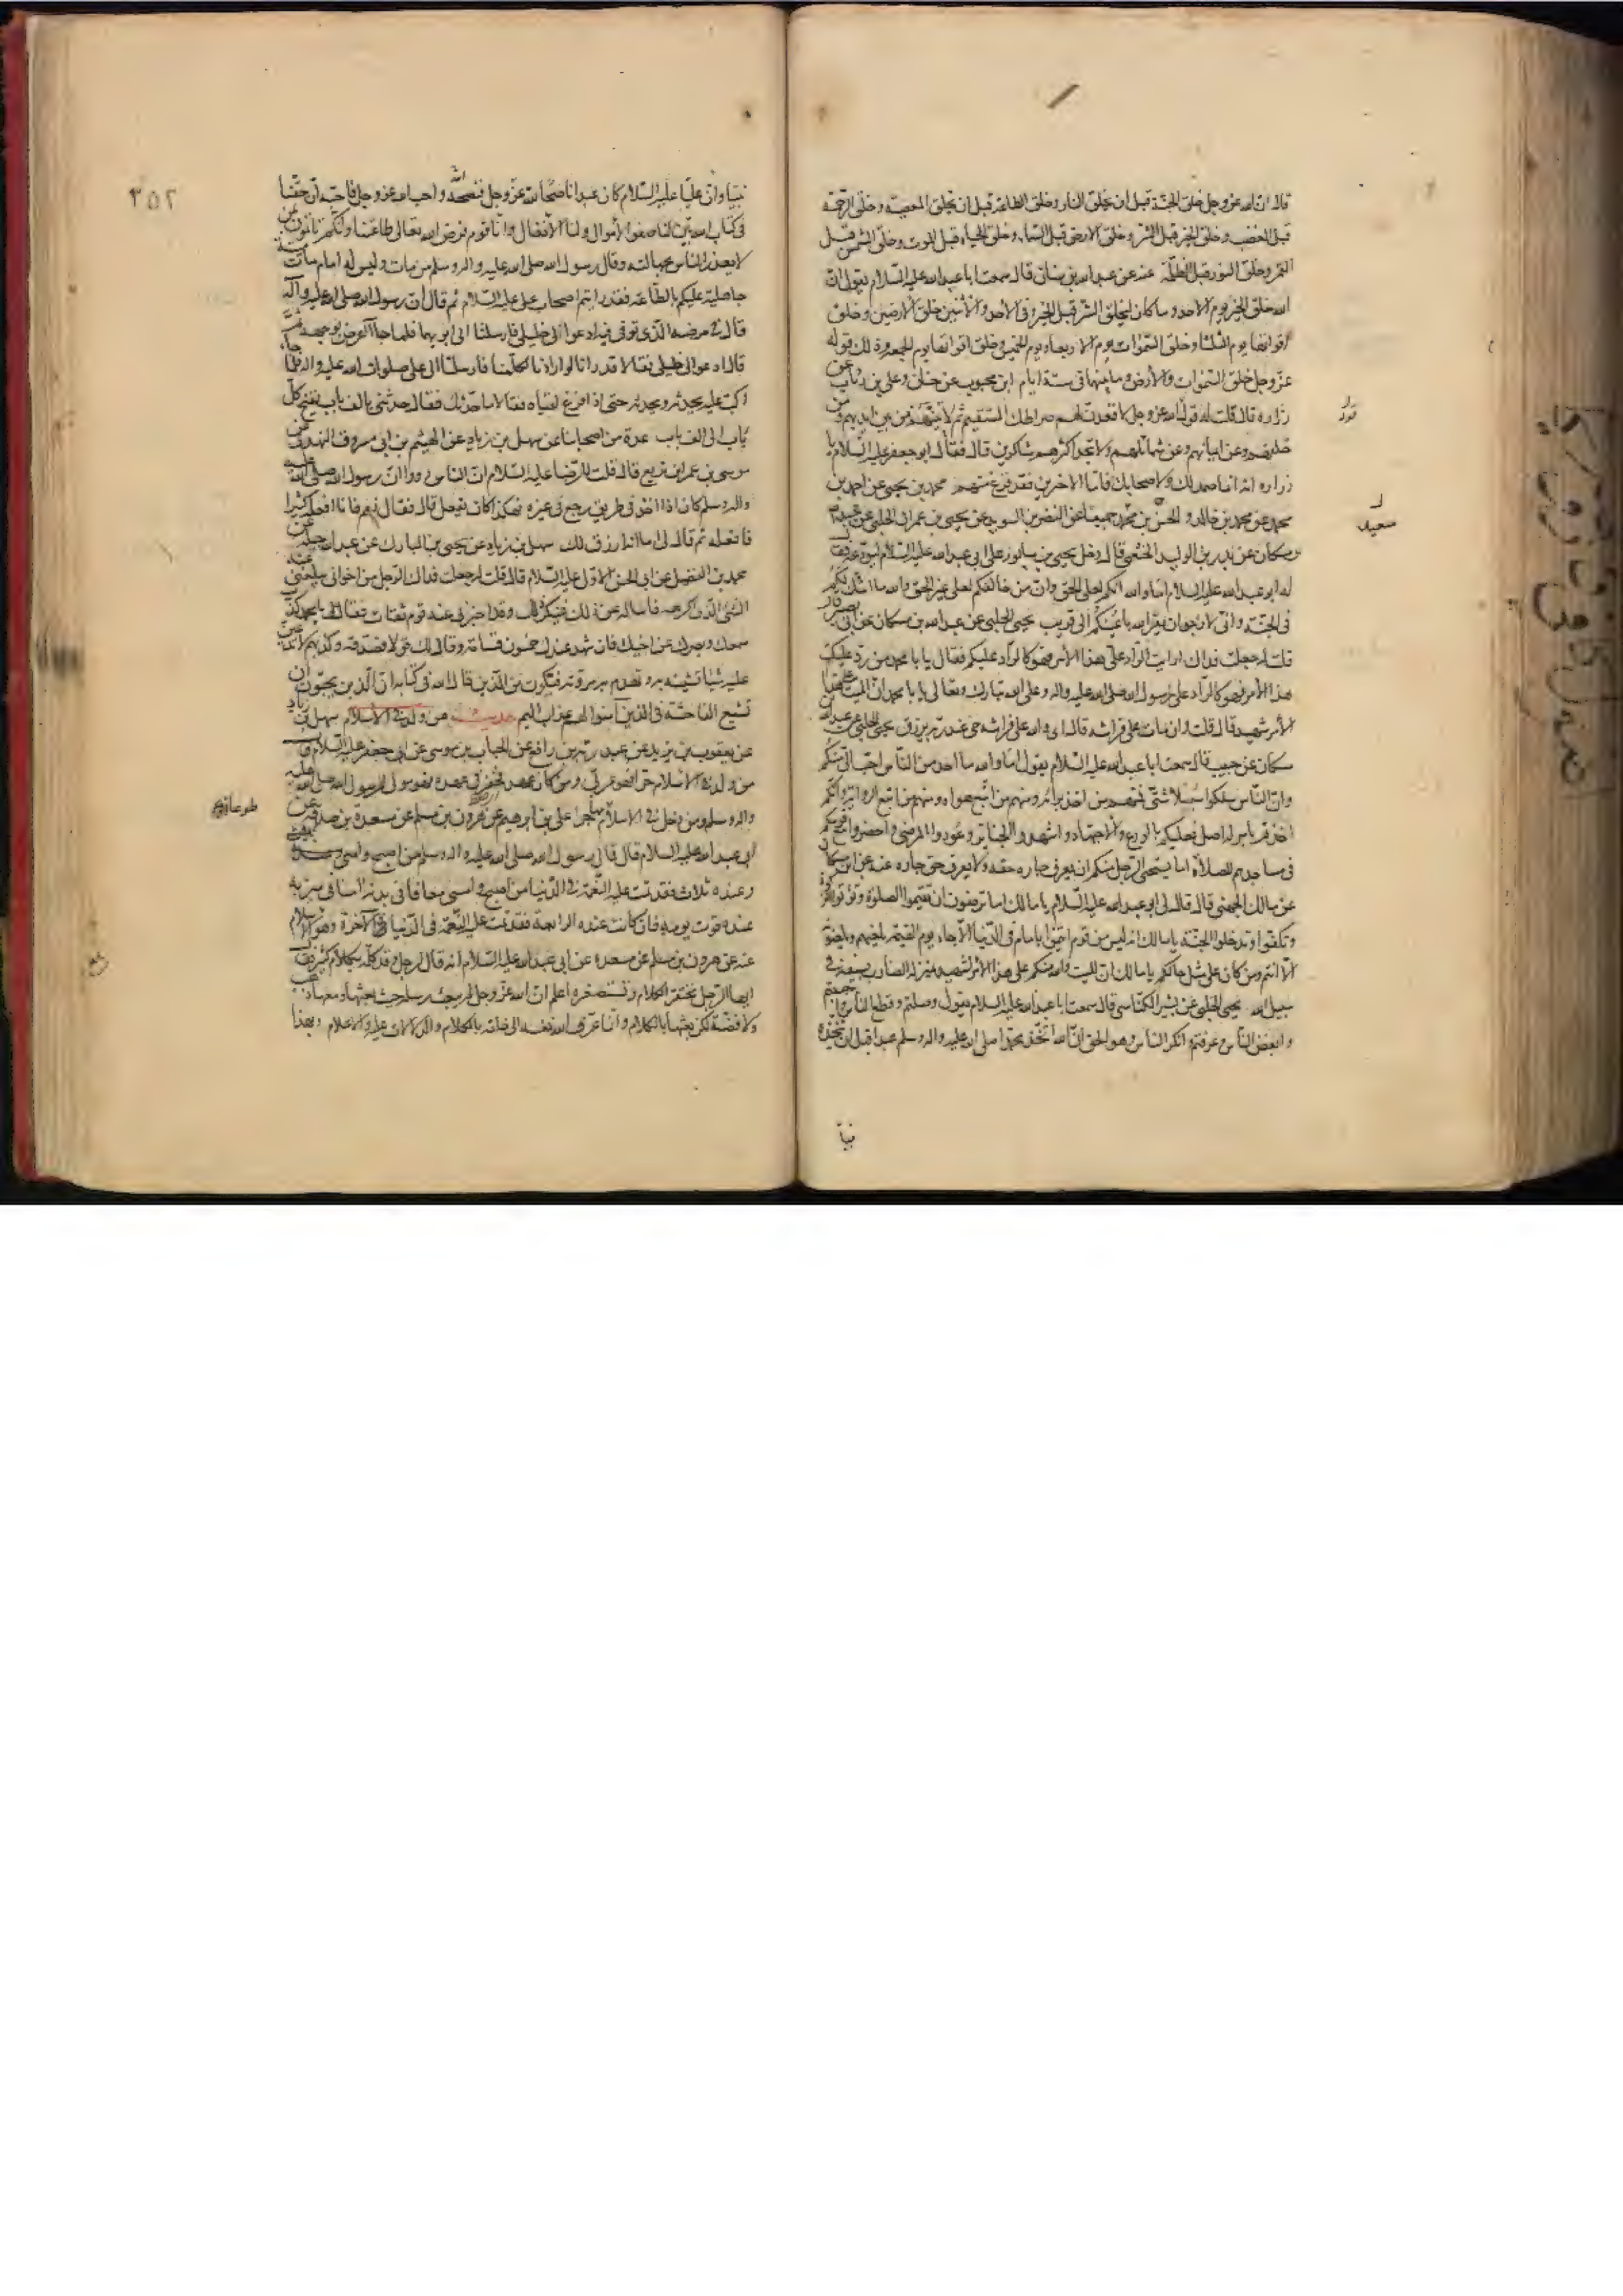 قال ان الله عز وجل خلق الجنة قبل ان يخلق النار وخلق الطاعة قبل ان يخلق المعصية وخلق الرحمة
قبل الغضب وخلق الخير قبل الشر وخلق الارض قبل السماء وخلق الحياة قبل الموت وخلق الشمس قبل
القمر وخلق النور قبل الظلمة عنه عن عبد الله بن سنان قال سمعت ابا عبد الله عليه السلام يقول ان
الله خلق الخير يوم الاحد وما كان ليخلق الشر قبل الخير وفي الاحد والاثنين خلق الارضين وخلق
اقواتها يوم الثلثا وخلق السموات يوم الاربعاء ويوم الخميس وخلق اقواتها يوم الجمعة وذلك قوله
عز وجل خلق السموات والارض وما بينهما في ستة ايام ابن محبوب عن حنان وعلي بن رئاب عن
زراره قال قلت له قوله عز وجل لاقعدن لهم صراطك المستقيم ثم لآتينهم من بين ايديهم ومن
خلفهم وعن ايمانهم وعن شمائلهم ولا تجد اكثرهم شاكرين قال فقال ابو جعفر عليه السلام يا
زراره انه انما صمد لك ولاصحابك فاما الآخرين فقد فرغ منهم محمد بن يحيى عن احمد بن
محمد عن محمد بن خالد والحسين بن محمد جميعا عن النضر بن السويد عن يحيى بن عمران الحلبي عن عبد الله
بن مسكان عن بدر بن الوليد الخثعمي قال دخل يحيى بن سابور على ابي عبد الله عليه السلام ليودعه فقال
له ابو عبد الله عليه السلام اما والله انكم لعلى الحق وان من خالفكم لعلى غير الحق والله ما اشك لكم
في الجنة واني لارجو ان يقر الله باعينكم الى قريب يحيى الحلبي عن عبد الله بن مسكان عن ابي بصير قال
قلت له جعلت فداك ارايت الراد على هذا الامر فهو كالراد عليكم فقال يا با محمد من رد عليك
هذا الامر فهو كالراد على رسول الله صلى الله عليه واله وعلى الله تبارك وتعالى يا با محمد ان الميت منكم على هذا
الامر شهيد قال قلت وان مات على فراشه قال اي والله على فراشه حي عند ربه يرزق يحيى الحلبي عن عبد الله
مسكان عن حبيب قال سمعت ابا عبد الله عليه السلام يقول اما والله ما احد من الناس احب الي منكم
وان الناس سلكوا سبلا شتى فمنهم من اخذ برايه ومنهم من اتبع هواه ومنهم من اتبع الرواية وانكم
اخذتم بامر له اصل فعليكم بالورع والاجتهاد واشهدوا الجنائز وعودوا المرضى واحضروا مع قومكم
في مساجدهم للصلاة اما يستحيى الرجل منكم ان يعرف جاره حقه ولا يعرف حق جاره عنه عن ابن مسكان
عن مالك الجهني قال قال لي ابو عبد الله عليه السلام يا مالك اما ترضون ان تقيموا الصلوة وتؤتوا الزكوة
وتكفوا وتدخلوا الجنة يا مالك انه ليس من قوم ائتموا بامام في الدنيا الا جاء يوم القيمة يلعنهم ويلعنونه
الا انتم ومن كان على مثل حالكم يا مالك ان الميت والله منكم على هذا الامر لشهيد بمنزلة الضارب بسيفه في
سبيل الله يحيى الحلبي عن بشير الكناسي قال سمعت ابا عبد الله عليه السلام يقول وصلتم وقطع الناس واحببتم
وابغض الناس وعرفتم وانكر الناس وهو الحق ان الله اتخذ محمدا صلى الله عليه واله وسلم عبدا قبل ان يتخذه
نبيا
سعيد
٣٥٢
نبيا وان عليا عليه السلام كان عبدا ناصحا لله عز وجل فنصحه الله واحب الله عز وجل فاحبه ان حقنا
في كتاب الله بين لنا صفوا الاموال ولنا الانفال وانا قوم فرض الله تعالى طاعتنا وانكم تاتمون بمن
لا يعذر الناس بجهالته وقال رسول الله صلى الله عليه واله وسلم من مات وليس له امام مات ميتة
جاهلية عليكم بالطاعة فقد رايتم اصحاب علي عليه السلام ثم قال ان رسول الله صلى الله عليه وآله
قال في مرضه الذي توفي فيه ادعوا لي خليلي فارسلتا الى ابويهما فلما جاآ اعرض بوجهه ثم
قال ادعوا لي خليلي فقالا قد رانا لو ارادنا لكلمنا فارسلتا الى علي صلوات الله عليه واله فلما جاء
اكب عليه يحدثه ويحدثه حتى اذا فرغ لقياه فقالا ما حدثك فقال حدثني بالف باب يفتح كل
باب الى الف باب عدة من اصحابنا عن سهل بن زياد عن الهيثم بن ابي مسروق النهدي عن
موسى بن عمر ابن بزيع قال قلت للرضا عليه السلام ان الناس رووا ان رسول الله صلى الله عليه
واله وسلم كان اذا اخذ في طريق رجع في غيره فهكذا كان يفعل قال فقال نعم فانا افعله كثيرا
فافعله ثم قال لي اما انه ارزق لك سهل بن زياد عن يحيى بن المبارك عن عبد الله بن جبلة عن
محمد بن الفضيل عن ابي الحسن الاول عليه السلام قال قلت له جعلت فداك الرجل من اخواني يبلغني عنه
الشئ الذي اكرهه فاساله عن ذلك فينكر ذلك وقد اخبرني عنه قوم ثقات فقال لي يا محمد كذب
سمعك وبصرك عن اخيك فان شهد عندك خمسون قسامة وقال لك قولا فصدقه وكذبهم لا تذيعن
عليه شيئا تشينه به وتهدم به مروته فتكون من الذين قال الله في كتابه ان الذين يحبون ان
تشيع الفاحشة في الذين آمنوا لهم عذاب اليم حديث من ولد في الاسلام سهل بن زياد
عن يعقوب بن يزيد عن عبد ربه بن رافع عن الحباب بن موسى عن ابي جعفر عليه السلام قال
من ولد في الاسلام حرا فهو عربي ومن كان له عهد فخفر في عهده فهو مولى لرسول الله صلى الله عليه
واله وسلم ومن دخل في الاسلام طوعا فهو مهاجر علي بن ابرهيم عن هرون بن مسلم عن مسعدة بن صدقة عن
ابي عبد الله عليه السلام قال قال رسول الله صلى الله عليه واله وسلم من اصبح وامسى
وعنده ثلاث فقد تمت عليه النعمة في الدنيا من اصبح وامسى معافا في بدنه آمنا في سربه
عنده قوت يومه فان كانت عنده الرابعة فقد تمت عليه النعمة في الدنيا والآخرة وهو الاسلام
عنه عن هرون بن مسلم عن مسعدة عن ابي عبد الله عليه السلام انه قال لرجل وقد كلمه بكلام كثير فقال
ايها الرجل تحتقر الكلام وتستصغره اعلم ان الله عز وجل لم يبعث رسله حيث بعثها ومعها ذهب
ولا فضة لكن بعثها بالكلام وانما عرف الله نفسه الى خلقه بالكلام والدلالات عليه والاعلام وبهذا